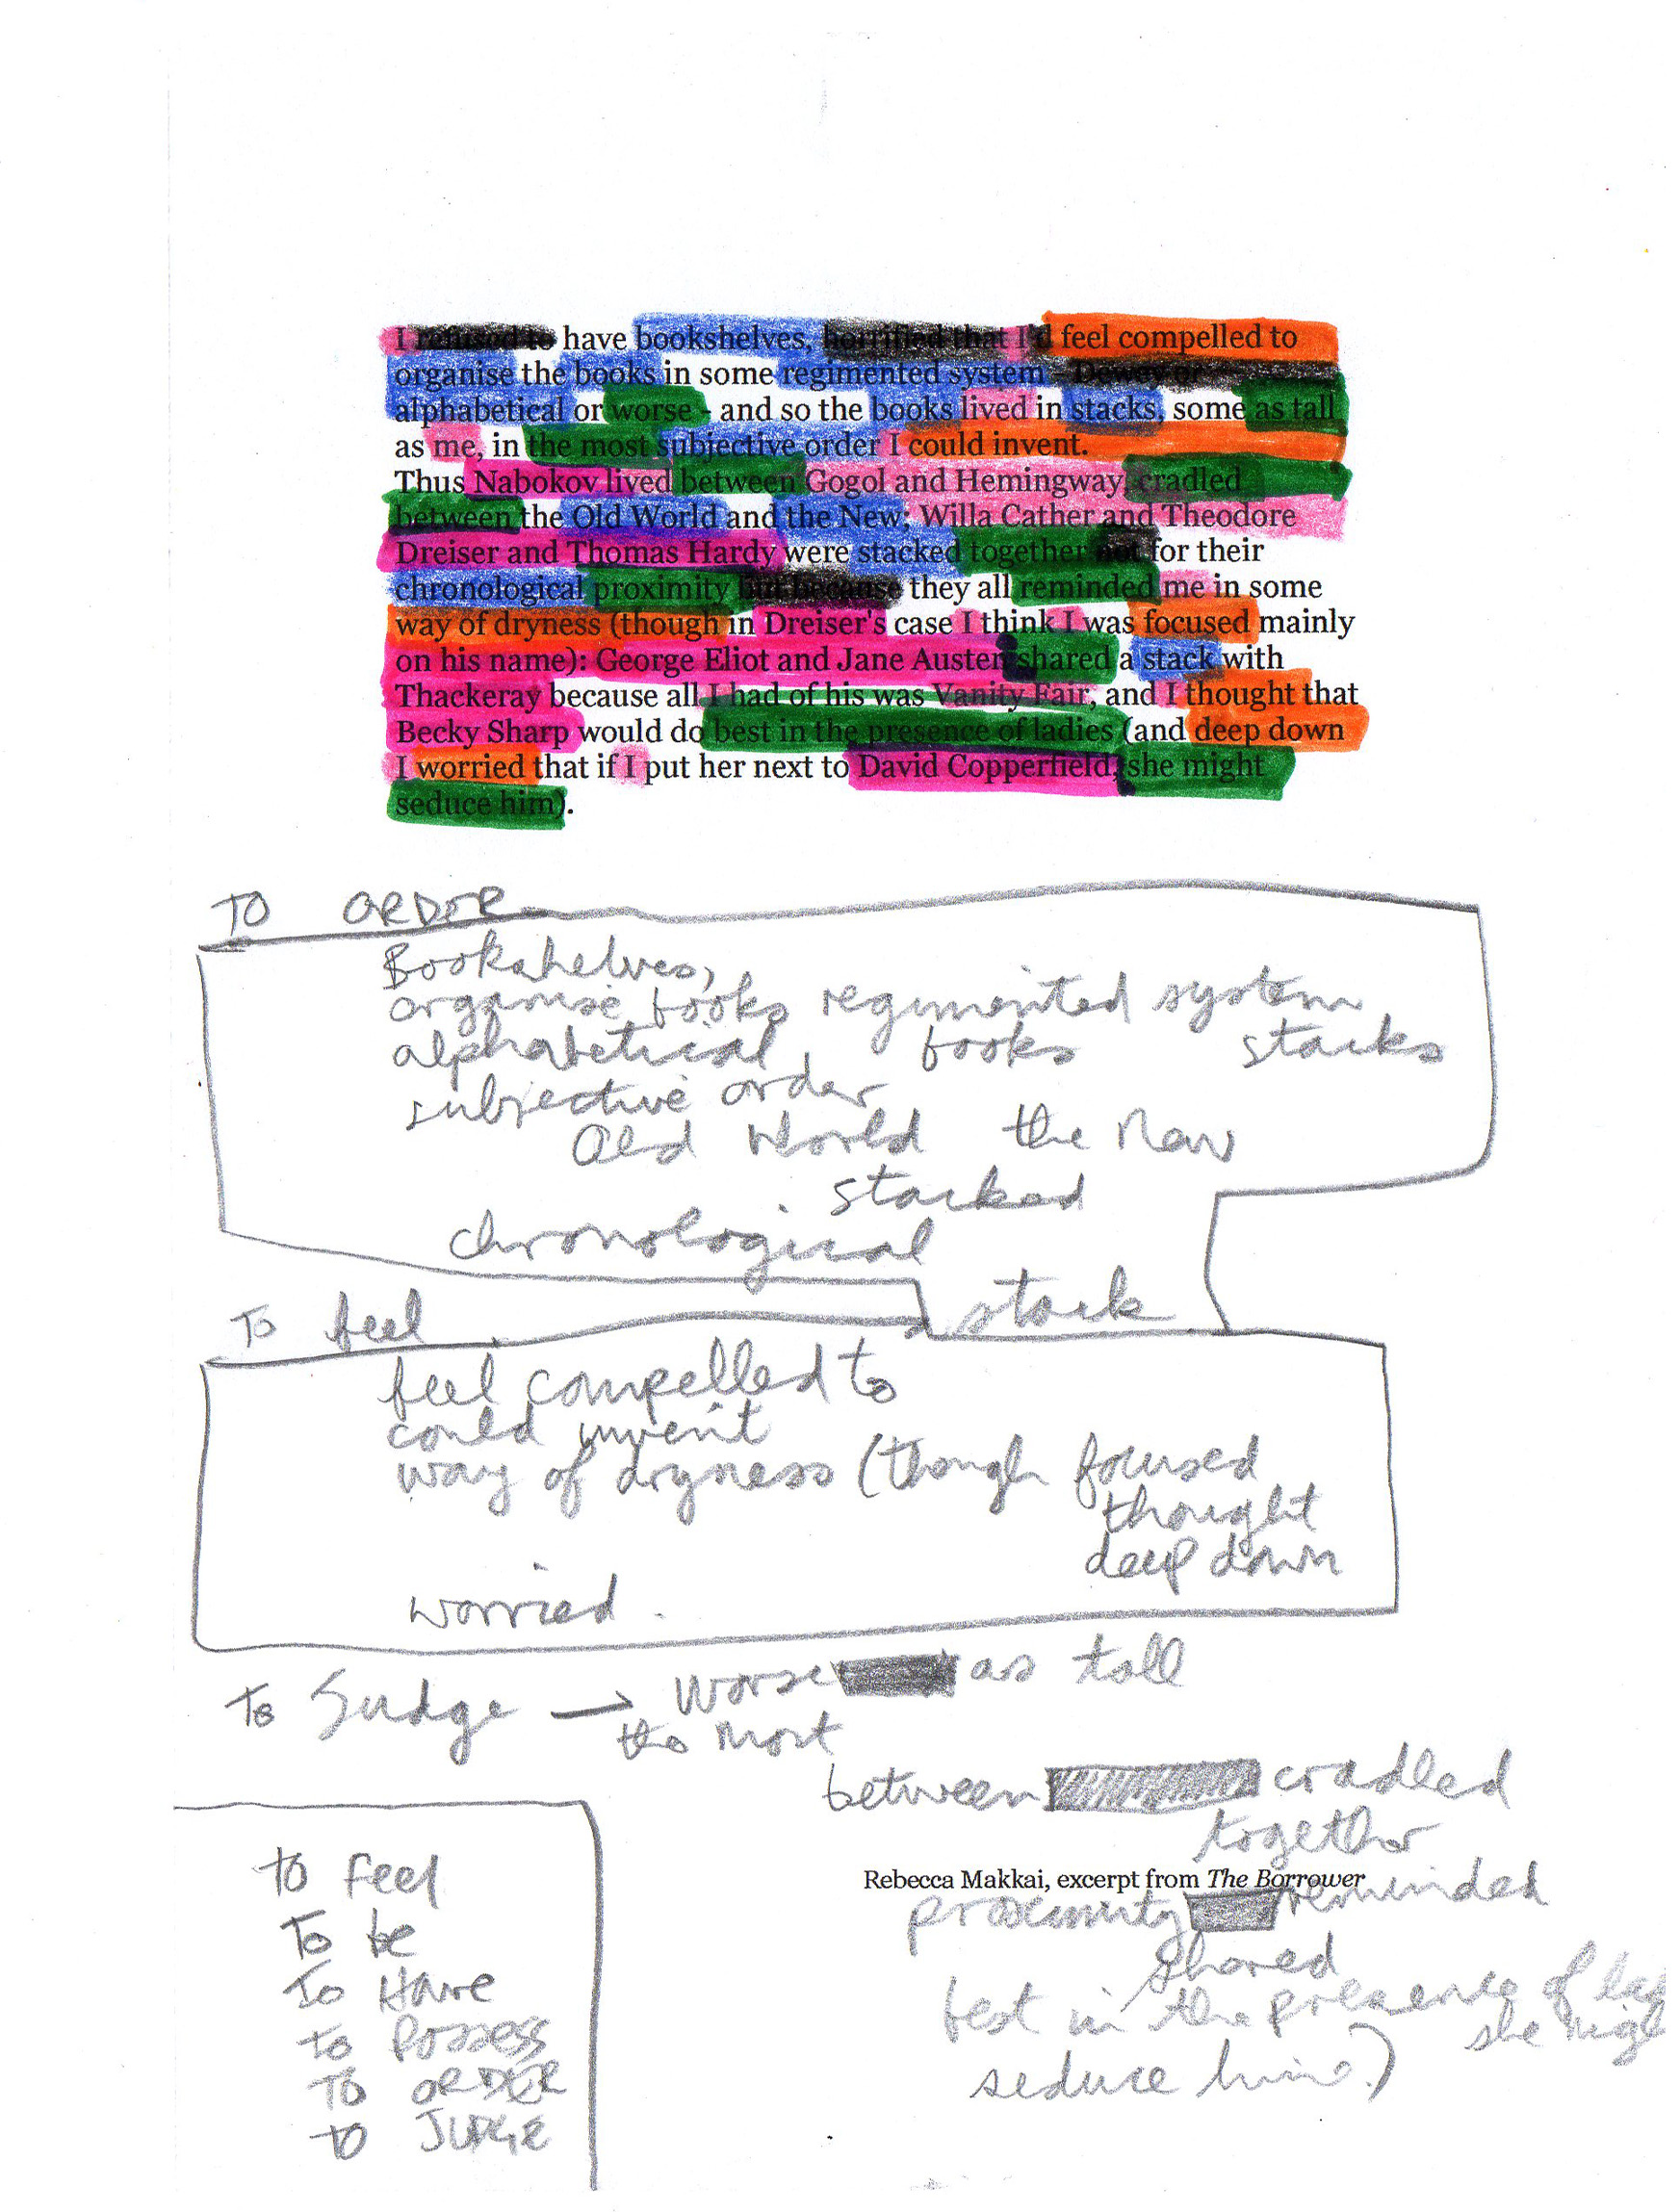 I refused to have bookshelves, horrified that I'd feel compelled to
organise the books in some regimented system - Dewey or
alphabetical or worse - and so the books lived in stacks, some as tall
as me, in the most subjective order I could invent.
Thus Nabokov lived between Gogol and Hemingway, cradled
between the Old World and the New; Willa Cather and Theodore
Dreiser and Thomas Hardy were stacked together not for their
chronological proximity but because they all reminded me in some
way of dryness (though in Dreiser's case I think I was focused mainly
on his name): George Eliot and Jane Austen shared a stack with
Thackeray because all I had of his was Vanity Fair, and I thought that
Becky Sharp would do best in the presence of ladies (and deep down
I worried that if I put her next to David Copperfield, she might
seduce him).
TO ORDER
Bookshelves,
organise books regimented system
alphabetical, books stacks
subjective order
Old World the New
stacked
chronological
stack
To feel
feel compelled to
could invent
way of dryness (though focused
thought
deep down
worried.
To Judge → worse as tall
the most
between cradled
together
Rebecca Makkai, excerpt from The Borrower
proximity reminded
shared
best in the presence of
she
seduce him.)
TO feel
To be
To HAVE
to Possess
TO ORDER
to JUDGE